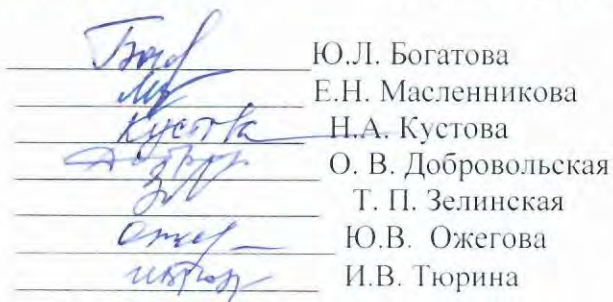 Ю.Л. Богатова
Е.Н. Масленникова
Кустова Н.А. Кустова
О. В. Добровольская
Т. П. Зелинская
Ю.В. Ожегова
И.В. Тюрина